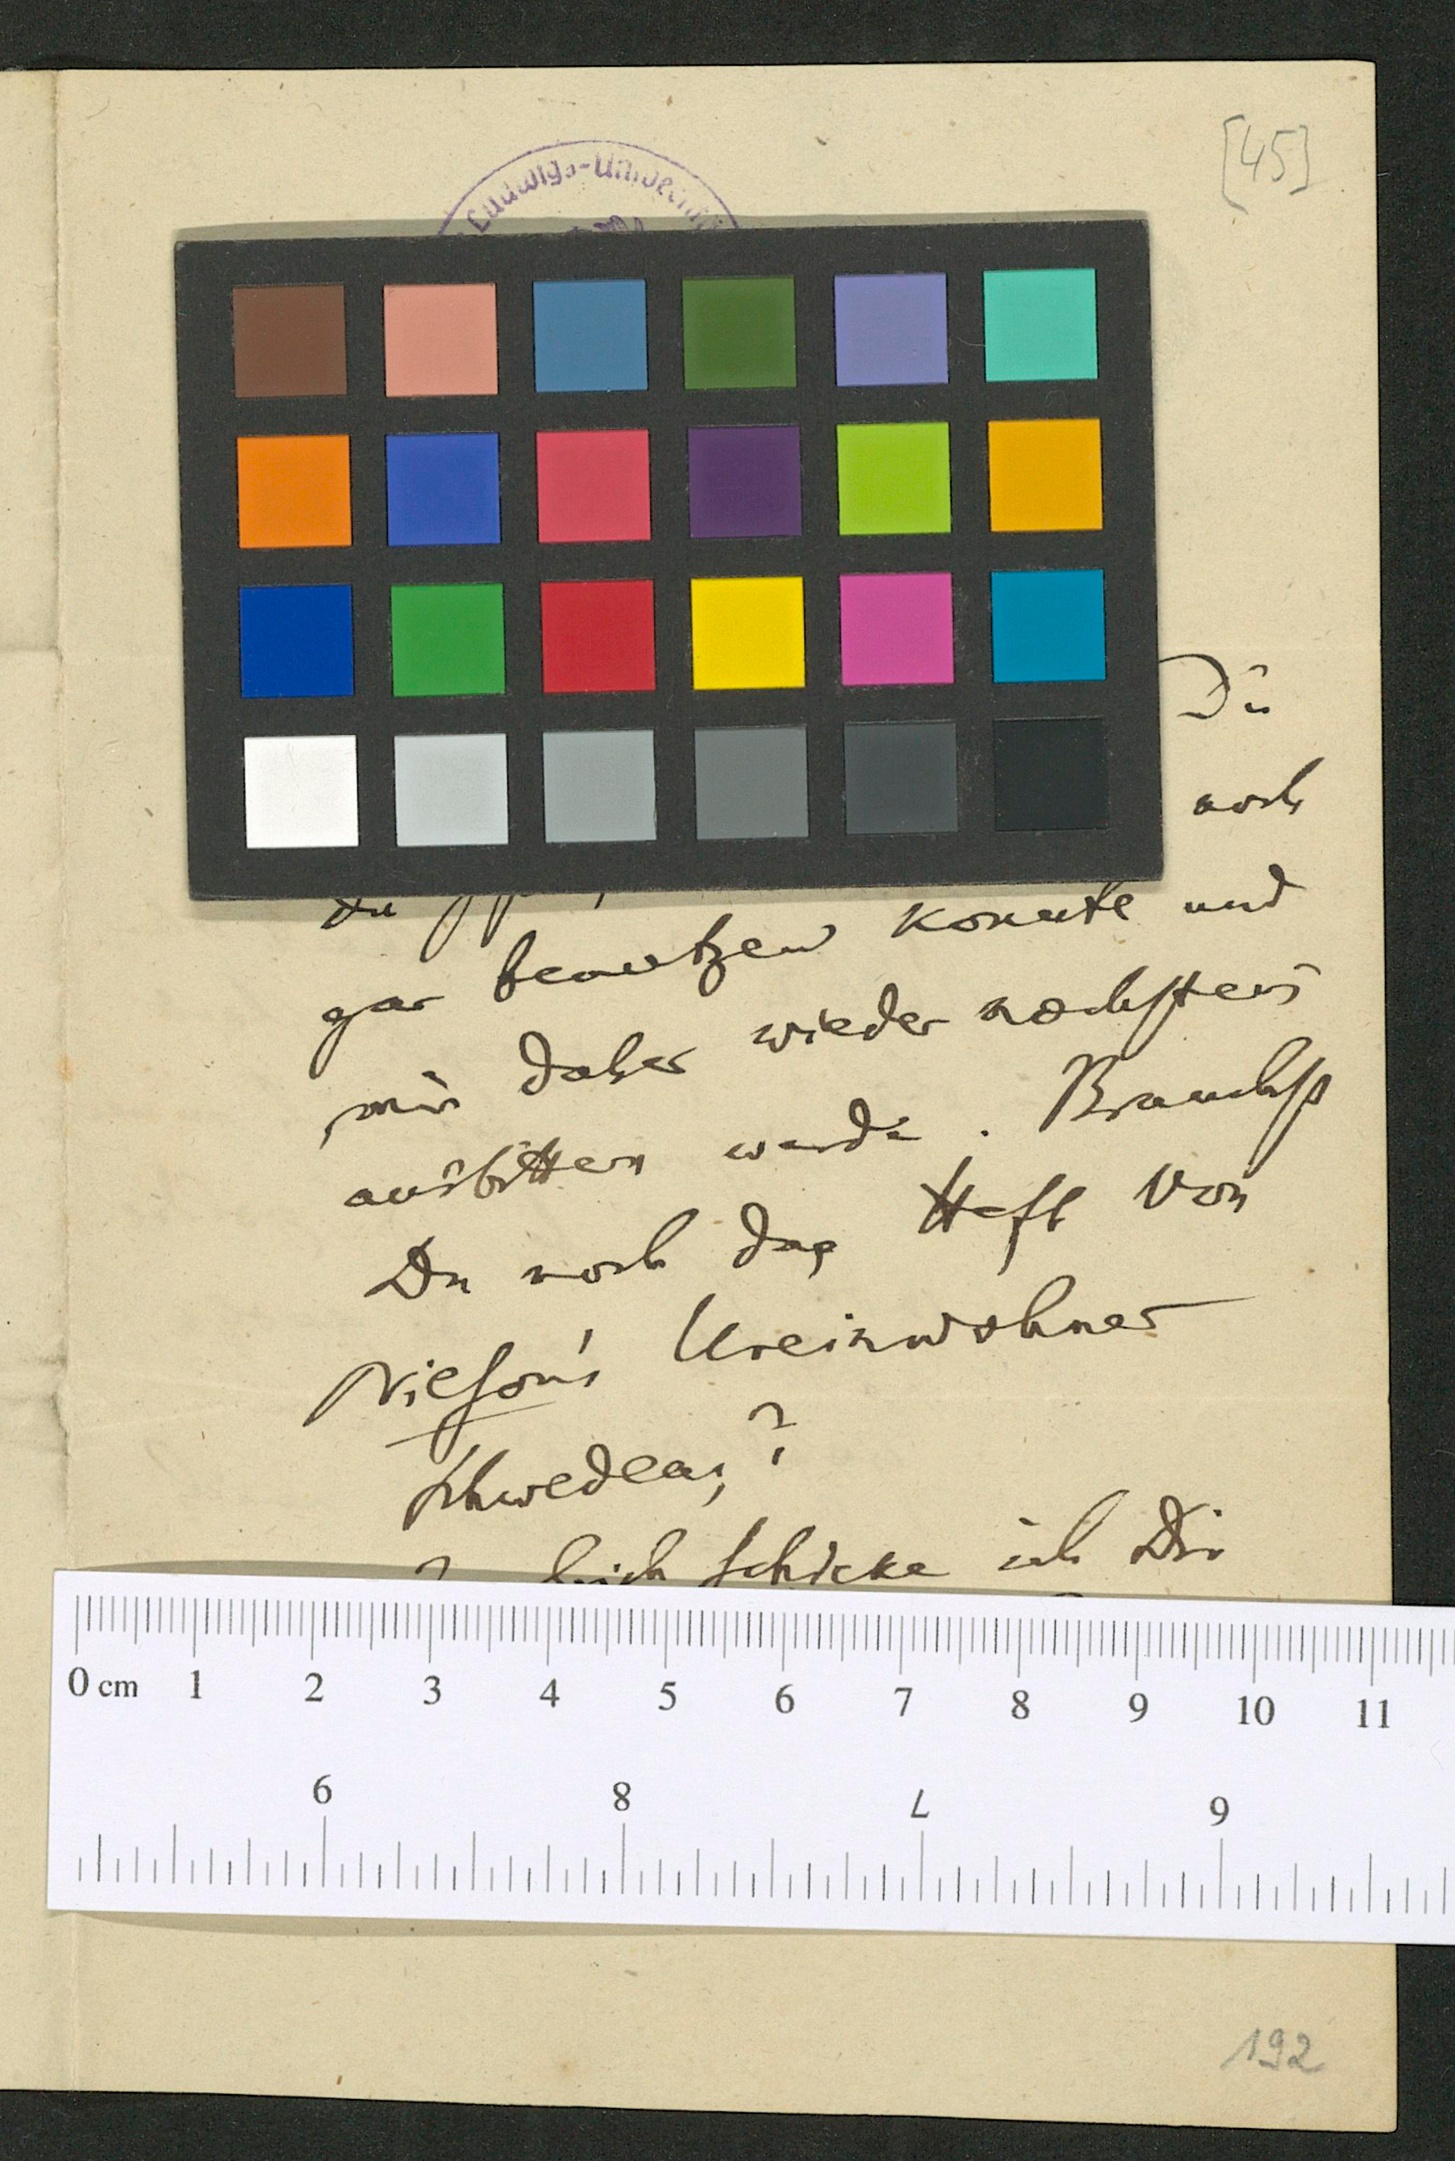 [45]
Ludwigs-Universit
Du
noch
gar benutzen konnte und
mir daher wieder nächstens
ausbitten werde. Brauchst
Du noch das Heft von
Nilson's Ureinwohner
Schwedens?
schicke ich Dir
0 cm 1 2 3 4 5 6 7 8 9 10 11
9 8 7 6
192